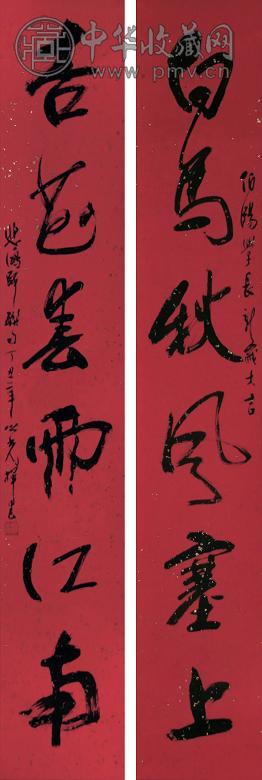 中华收藏网
www.pmv.cn
白马秋风塞上
伯陽學長新歲大吉
杏花春雨江南
悲鴻師聯句丁丑年